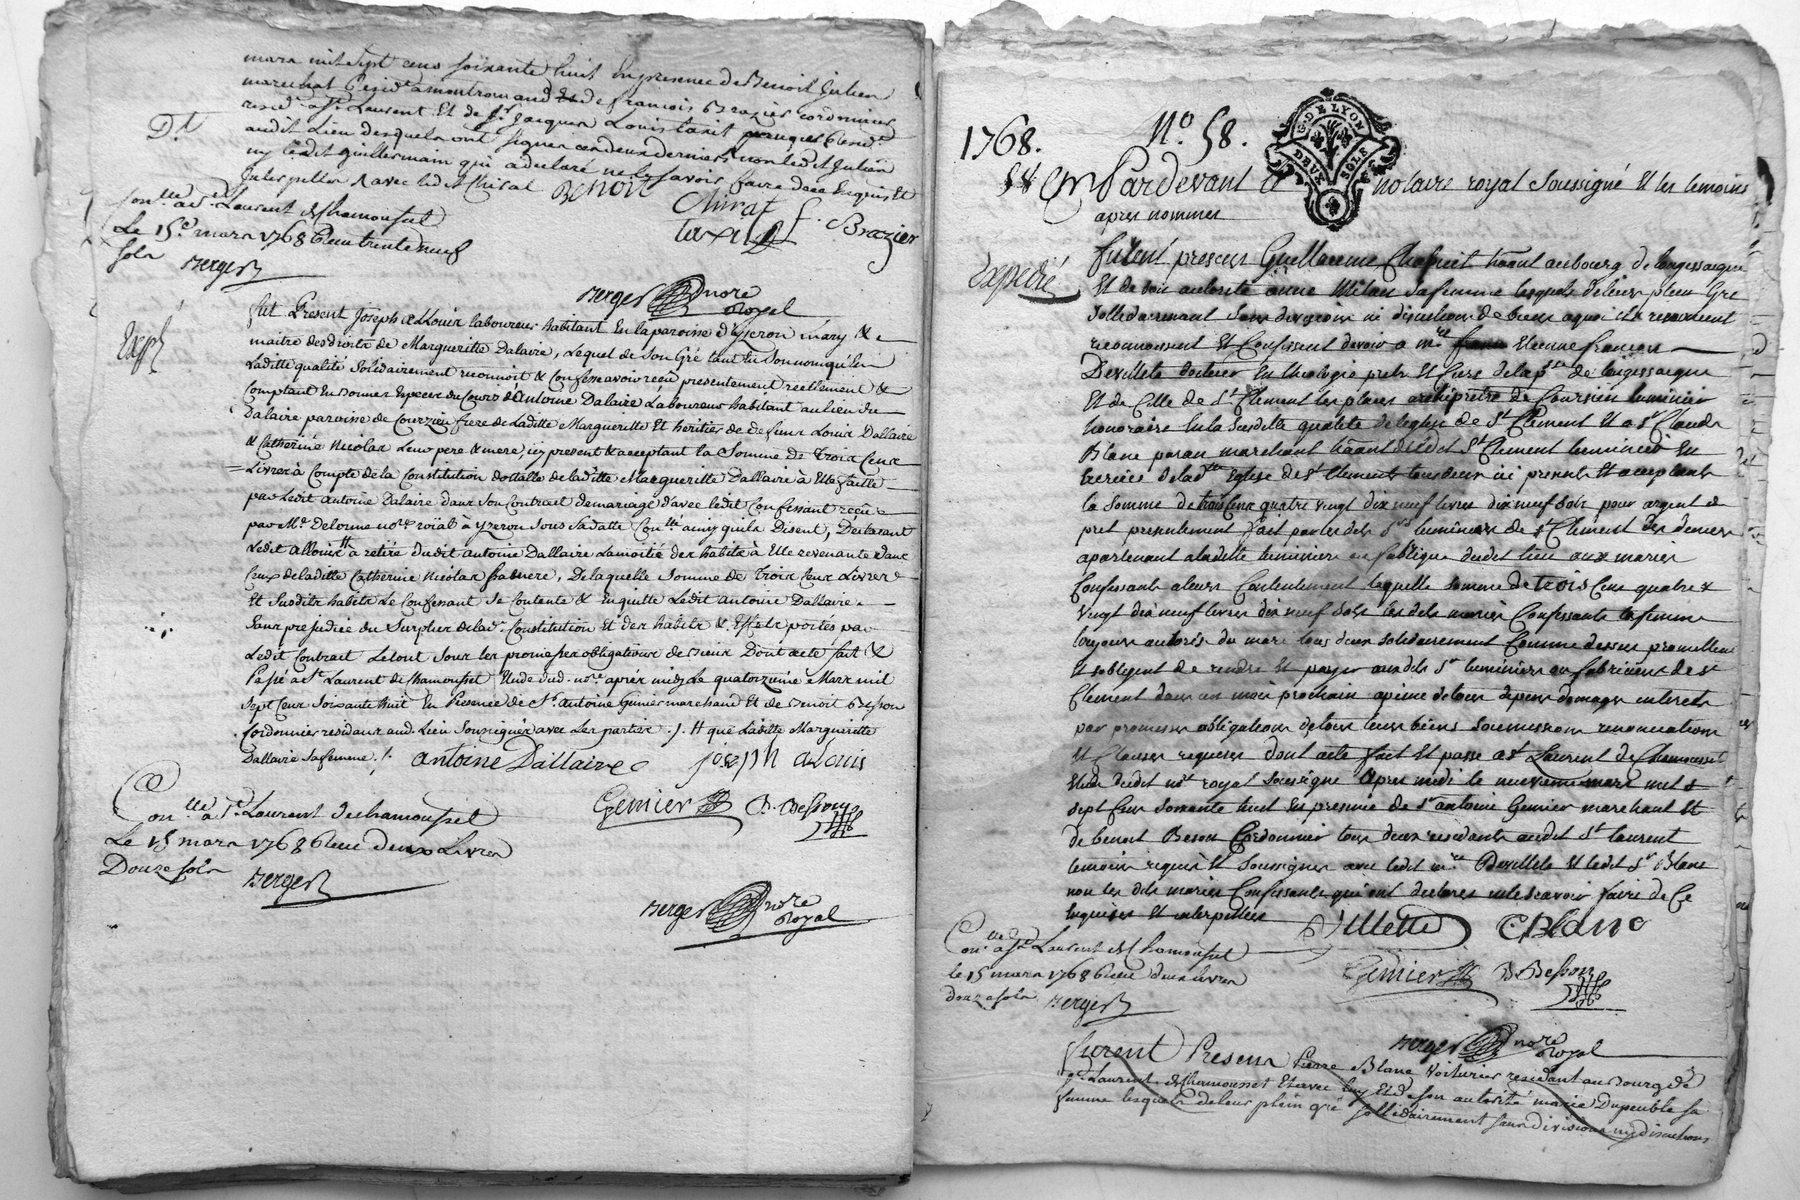 mars mil sept cens soixante huit en presence de Benoit Julien
marechal resid.t a montromand et de francois Brazier cordonnier
resid.t a St Laurent et de Sr Jacques Louis taxil
audit Lieu desquels ont signer ces deux derniers non ledit Julien
ny ledit guillermain qui a declaré ne le savoir faire de ce enquis et
Interpellés avec led. Sr Chirat Benoit
Dt
Chirat f. Brazier
taxil
Con.lle a St Laurent de Chamousset
Le 15e mars 1768 Reçu trente neuf
sols Berger
Berger nore
Royal
Expé
fut Present Joseph Allouis laboureur habitant En la paroisse d'yzeron Mary &
maitre des droits de Margueritte Dalaire, Lequel de Son Gré tant En son nom qu'En
Laditte qualité Solidairement reconnoit & Confesse avoir reçû presentement reellement &
Comptant En bonnes Especes du Cours d'Antoine Dalaire Laboureur habitant au lieu du
Dalaire paroisse de Courzieu frere de Laditte Margueritte Et heritier de deffunt Louis Dallaire
& Catherine Nicolas Leur pere & mere, icy present & acceptant la Somme de Trois Cens
Livres à Compte de la Constitution dottalle de lad.te Margueritte Dallaire à Elle faitte
par Ledit Antoine Dalaire dans Son Contract de mariage d'avec ledit Confessant reçu
par Me Delorme not.re roïal à yzeron Sous Sa datte Con.llé ainsy quils Disent, Declarant
Ledit allouis a retiré dudit antoine Dallaire La moitié des habits à Elle revenante dans
Ceux de laditte Catherine Nicolas Sa mere, De laquelle Somme de Trois Cens Livres
Et Susdits habits Le Confessant Se Contente & En quitte Ledit antoine Dallaire
Sans prejudice du Surplus de lad. Constitution Et des habits & Effets portés par
Ledit Contract Le tout Sous les promesses obligations de Biens Dont acte fait &
Passé a St Laurent de Chamousset Etude dud. no.re après midy Le quatorzieme Mars mil
Sept Cens Soixante huit En Presence de Sr antoine Genier marchand Et de Benoit Besson
Cordonnier residans aud. Lieu Soussignés avec Les parties
Dallaire Sa femme
antoine Dallaire joseph alouis
Con.lle a St Laurent de chamousset
Le 15 mars 1768 Reçu deux Livres
Douze sols Berger
Genier B. Besson
Berger nore
Royal
1768. No. 58.
G. DE LYON
DEUX SOLS
Pardevant Le notaire royal Soussigné Et les temoins
apres nommés
Expedié
furent presens Guillaume Chapuit habitant au bourg de Longessaigne
Et de son autorité anne Milan sa femme lesquels de leur plein Gré
Sollidairement Sans division ni discution de biens a quoi ils renoncent
reconnoissent Et Confessent devoir a Me Etienne francois
Devillete docteur En theologie pretre Et Curé de la p.sse de Longessaigne
Et de Celle de St Clement les places archipretre de Coursieu luminier
honoraire En la Susditte qualité de leglise de St Clement Et a Sr Claude
Blanc paran marchand habitant dudit St Clement luminier En
Exercice de lad. Eglise de St Clement tous deux ici presents Et acceptants
la Somme de trois Cens quatre vingt dix neuf livres dix neuf Sols pour argent de
pret presentement fait par les dits Srs luminiers de St Clement des deniers
apartenant a laditte luminiere ou fabrique dudit lieu aux mariés
Confessants a leur Contentement laquelle somme de trois Cens quatre
Vingt dix neuf livres dix neuf Sols les dits mariés Confessants la femme
toujours autorisée du mari tous deux Solidairement Comme dessus promettent
Et sobligent de rendre Et payer aux dits Srs luminiers ou fabriciens de St
Clement dans un mois prochain a peine de tous depens domages interets
par promesses obligations de tous leurs biens Soumissions renonciations
Et Clauses requises dont acte fait Et passé a St Laurent de Chamousset
Etude dudit not. royal Soussigné Apres midi le neuvieme mars mil
Sept Cens Soixante huit En presence de Sr antoine Genier marchand Et
de benoit Besson Cordonnier tous deux residants audit St laurent
temoins requis Et Soussignés avec ledit Me Devillete Et ledit Sr Blanc
non les dits mariés Confessants qui ont declarés ne le Scavoir faire de Ce
Enquises Et interpellées
Villette C Blanc
Con.lle a St Laurent de Chamousset
le 15 mars 1768 Reçu deux livres
douze sols Berger
Genier B. Besson
Berger nore
Royal
furent Presens Pierre Blanc Voiturier residant au Bourg de
St Laurent de Chamousset Et avec luy Et de son autorité marie Dupeuble sa
femme lesquels de leur plein gré sollidairement sans division ny discutions